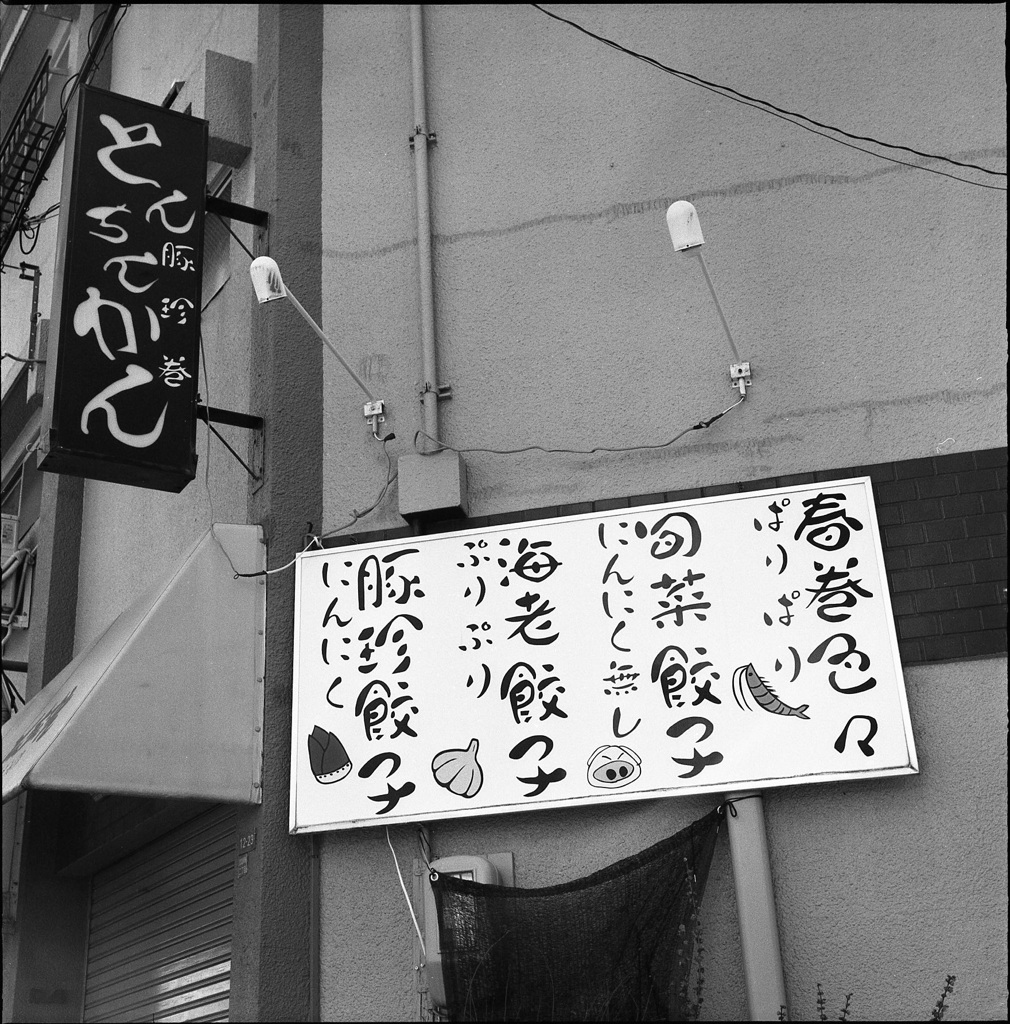 とんちんかん
豚珍巻
春巻色々
ぱりぱり
旬菜餃子
にんにく無し
海老餃子
ぷりぷり
豚珍餃子
にんにく